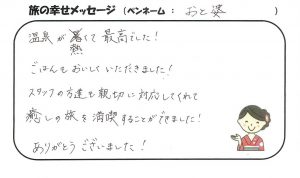 旅の幸せメッセージ（ペンネーム：おと姿）
温泉が熱くて最高でした！
ごはんもおいしくいただきました！
スタッフの方達も親切に対応してくれて
癒しの旅を満喫することができました！
ありがとうございました！